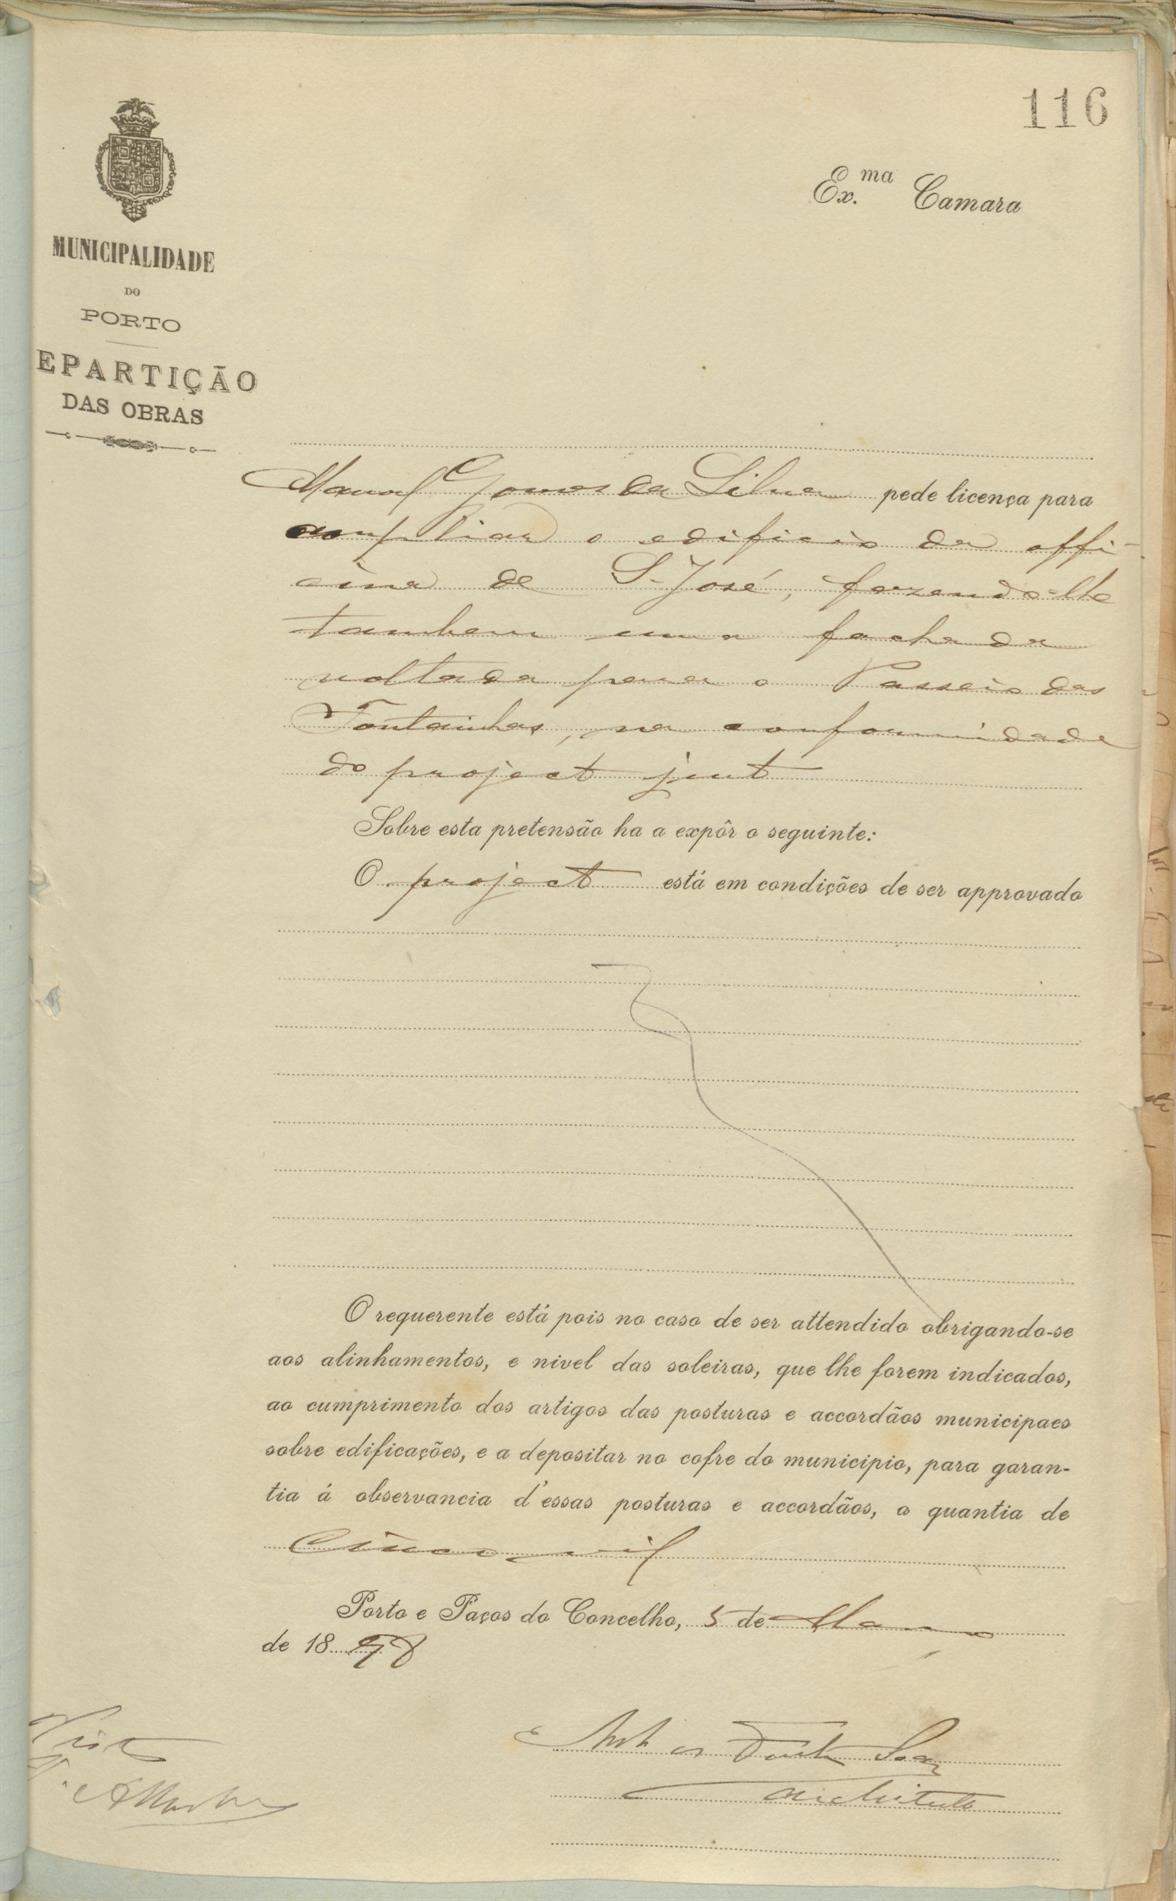 116
Ex.ma Camara
MUNICIPALIDADE
DO
PORTO
EPARTIÇÃO
DAS OBRAS
Manoel Gomes da Silva pede licença para
ampliar o edificio da offi-
cina de S. José, fazendo-lhe
tambem uma fachada
voltada para o Passeio das
Fontainhas, na conformidade
do project junt
Sobre esta pretensão ha a expôr o seguinte:
O project está em condições de ser approvado
O requerente está pois no caso de ser attendido obrigando-se
aos alinhamentos, e nivel das soleiras, que lhe forem indicados,
ao cumprimento dos artigos das posturas e accordãos municipaes
sobre edificações, e a depositar no cofre do municipio, para garan-
tia á observancia d'essas posturas e accordãos, a quantia de
Cinco mil
Porto e Paços do Concelho, 5 de Março
de 1898
Visto
architecto